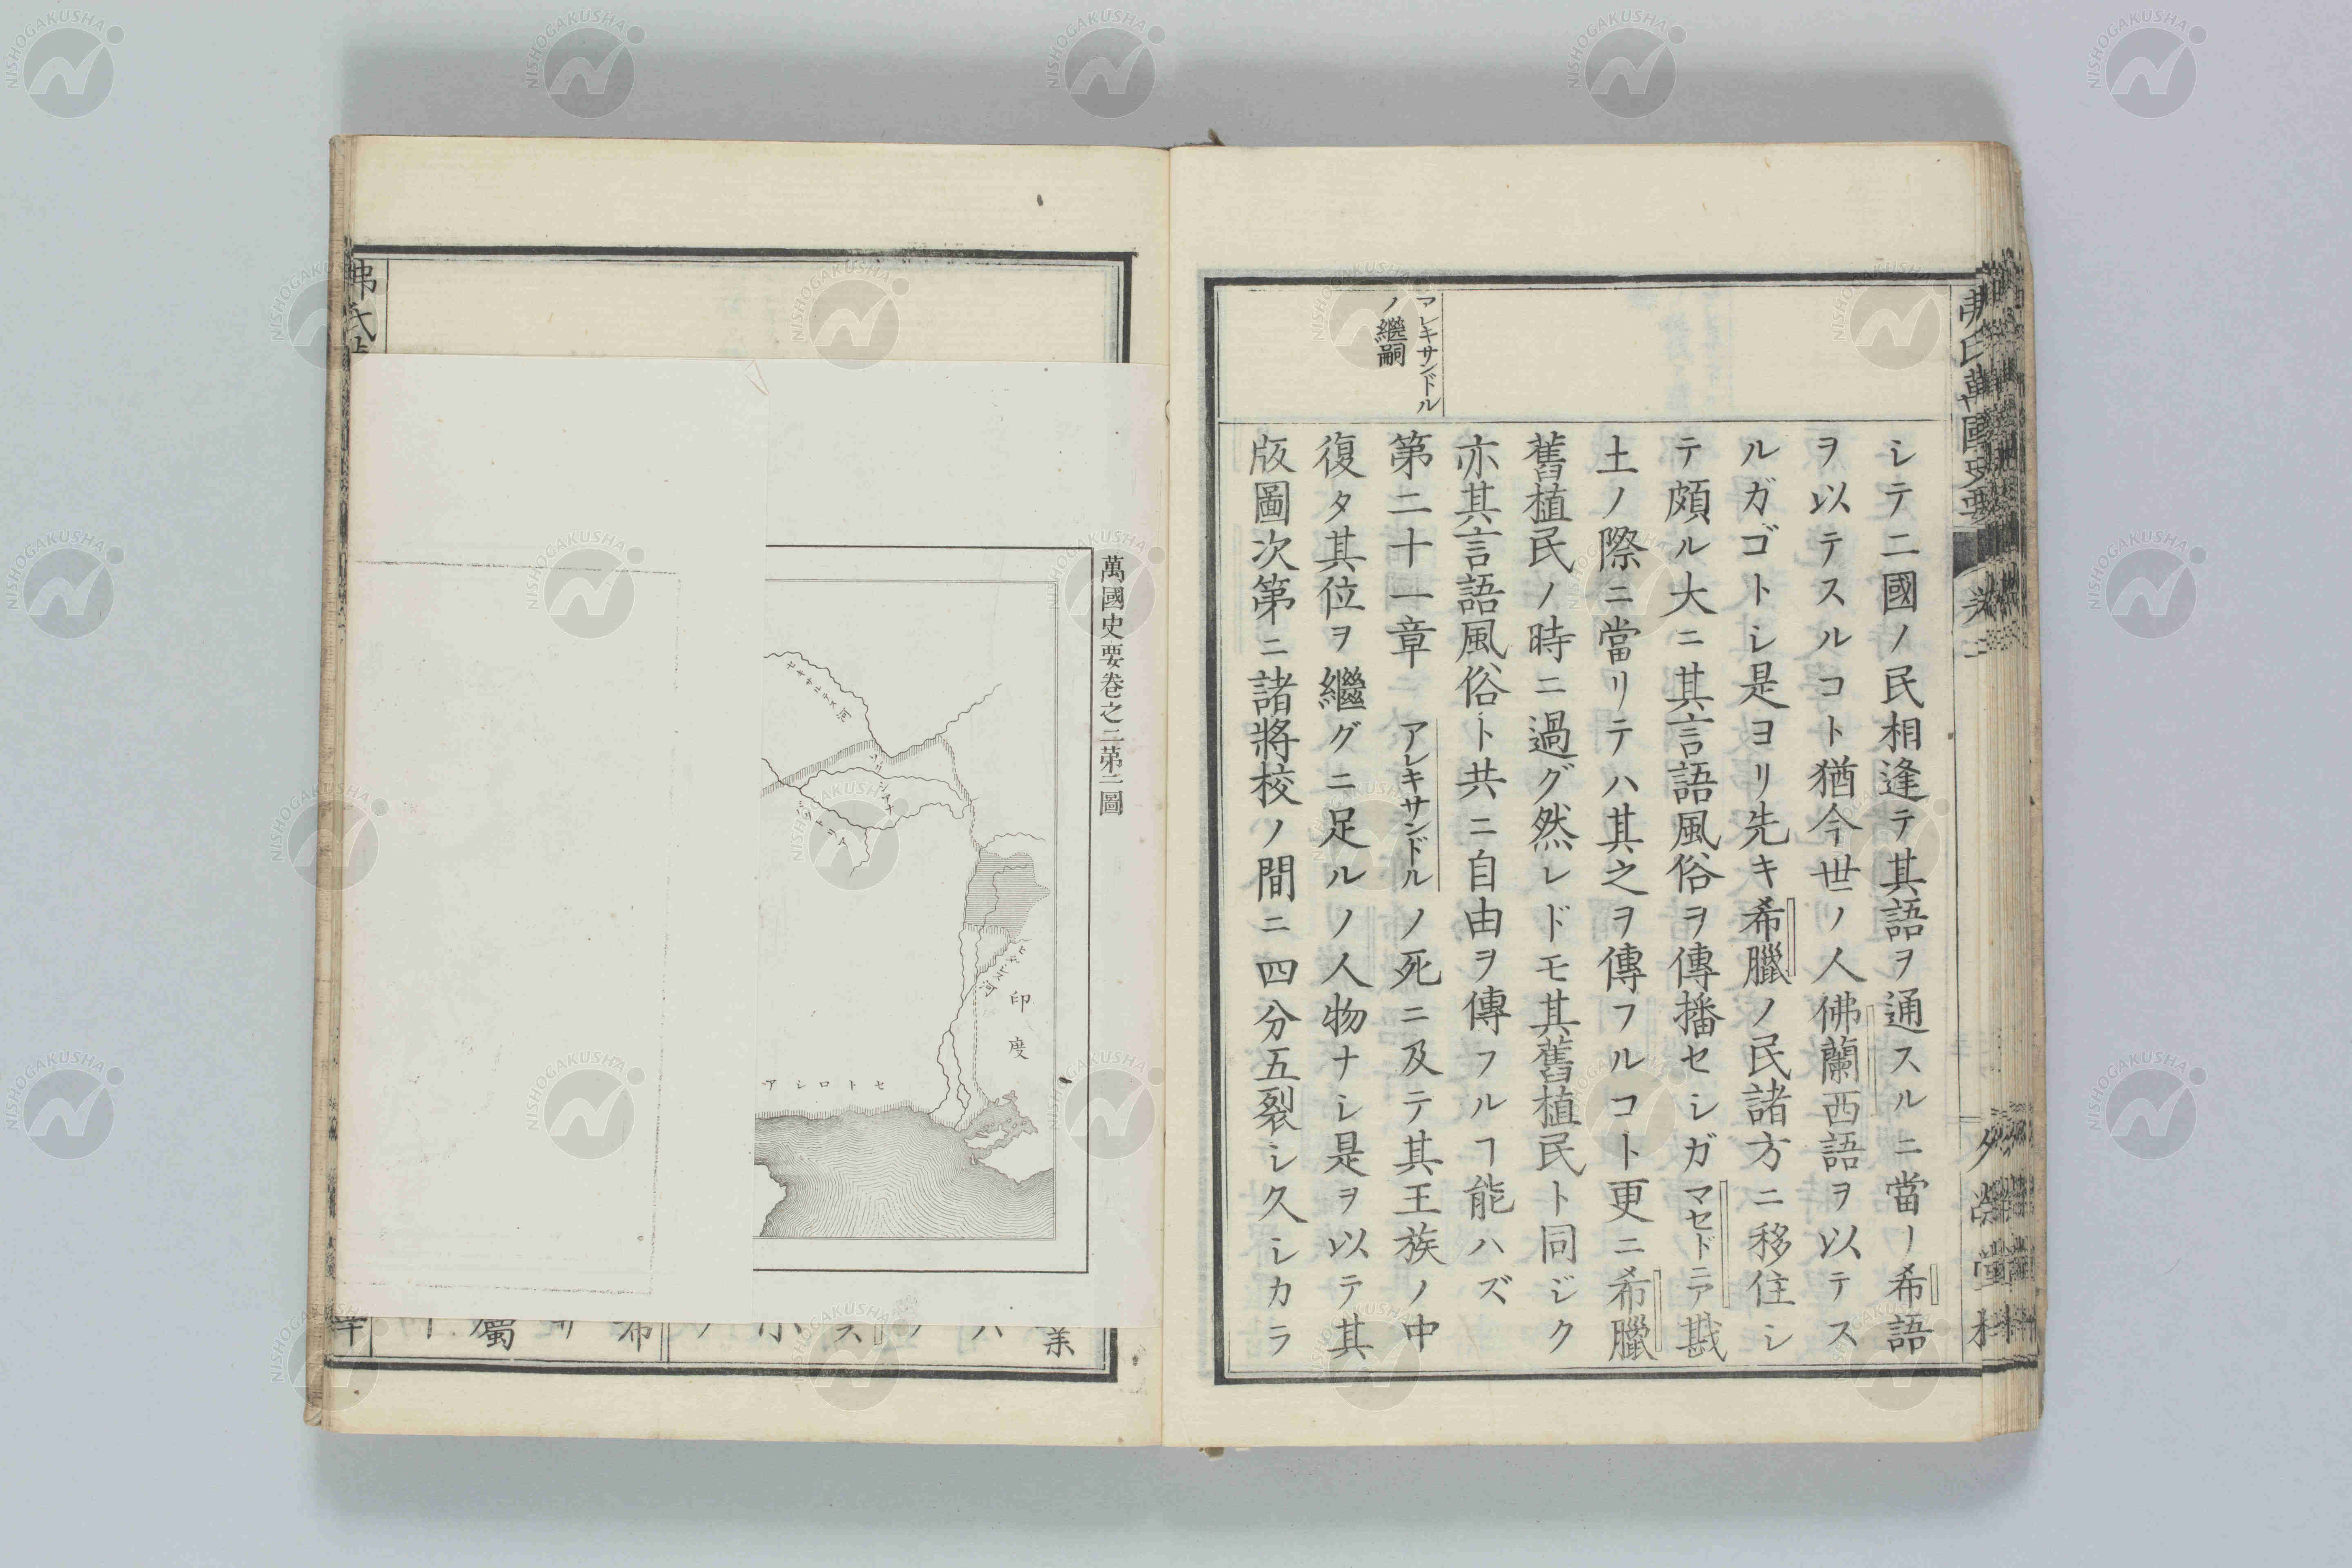 アレキサンドル
ノ繼嗣
シテ二國ノ民相逢テ其語ヲ通スルニ當ノ希語
ヲ以テスルコト猶今世ノ人佛蘭西語ヲ以テス
ルガゴトシ是ヨリ先キ希臘ノ民諸方ニ移住シ
テ頗ル大ニ其言語風俗ヲ傳播セシガマセドニア戡
土ノ際ニ當リテハ其之ヲ傳フルコト更ニ希臘
舊植民ノ時ニ過グ然レドモ其舊植民ト同ジク
亦其言語風俗ト共ニ自由ヲ傳フルヿ能ハズ
第二十一章 アレキサンドルノ死ニ及テ其王族ノ中
復タ其位ヲ繼グニ足ルノ人物ナシ是ヲ以テ其
版圖次第ニ諸將校ノ間ニ四分五裂シ久シカラ
萬國史要卷之二第三圖
印度
セトロシア
NISHOGAKUSHA